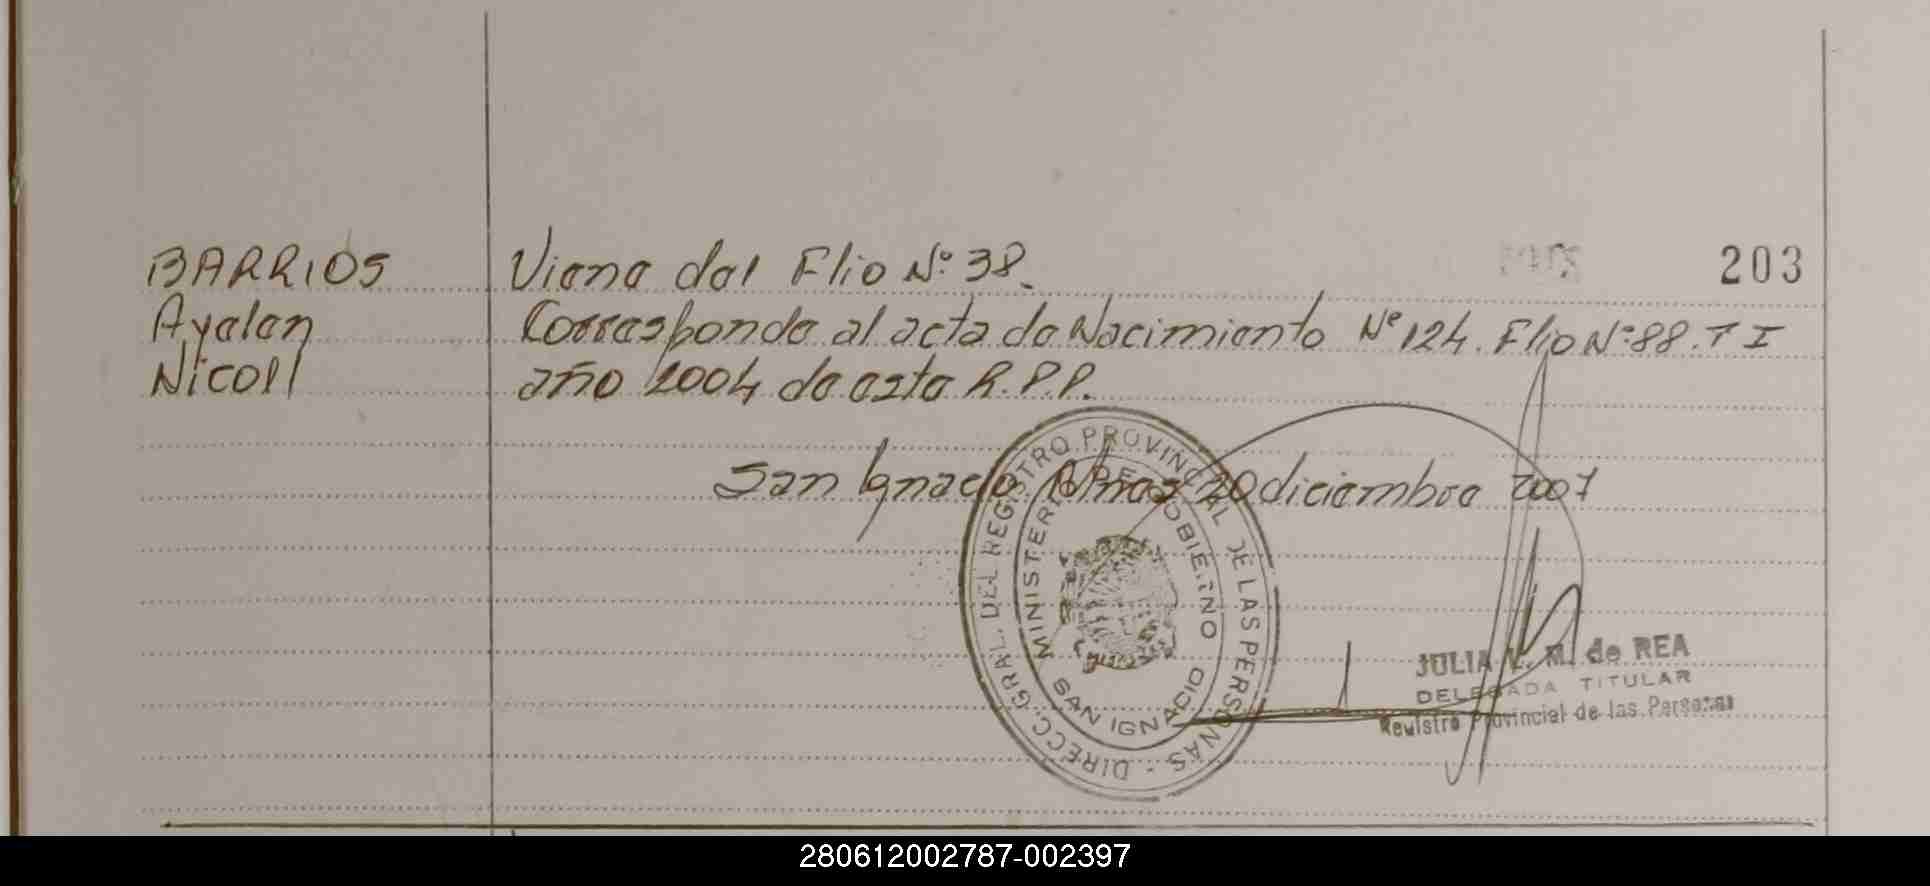 203
BARRIOS Viene del Flio Nº 38.
Ayelen Corresponde al acta de Nacimiento Nº 124. Flio Nº 88. T I
Nicoll año 2004 de esta R.P.P.
San Ignacio Mnes 20 diciembre 2007
DIRECC. GRAL. DEL REGISTRO PROVINCIAL DE LAS PERSONAS
MINISTERIO DE GOBIERNO
SAN IGNACIO
JULIA V. M. de REA
DELEGADA TITULAR
Registro Provincial de las Personas
280612002787-002397